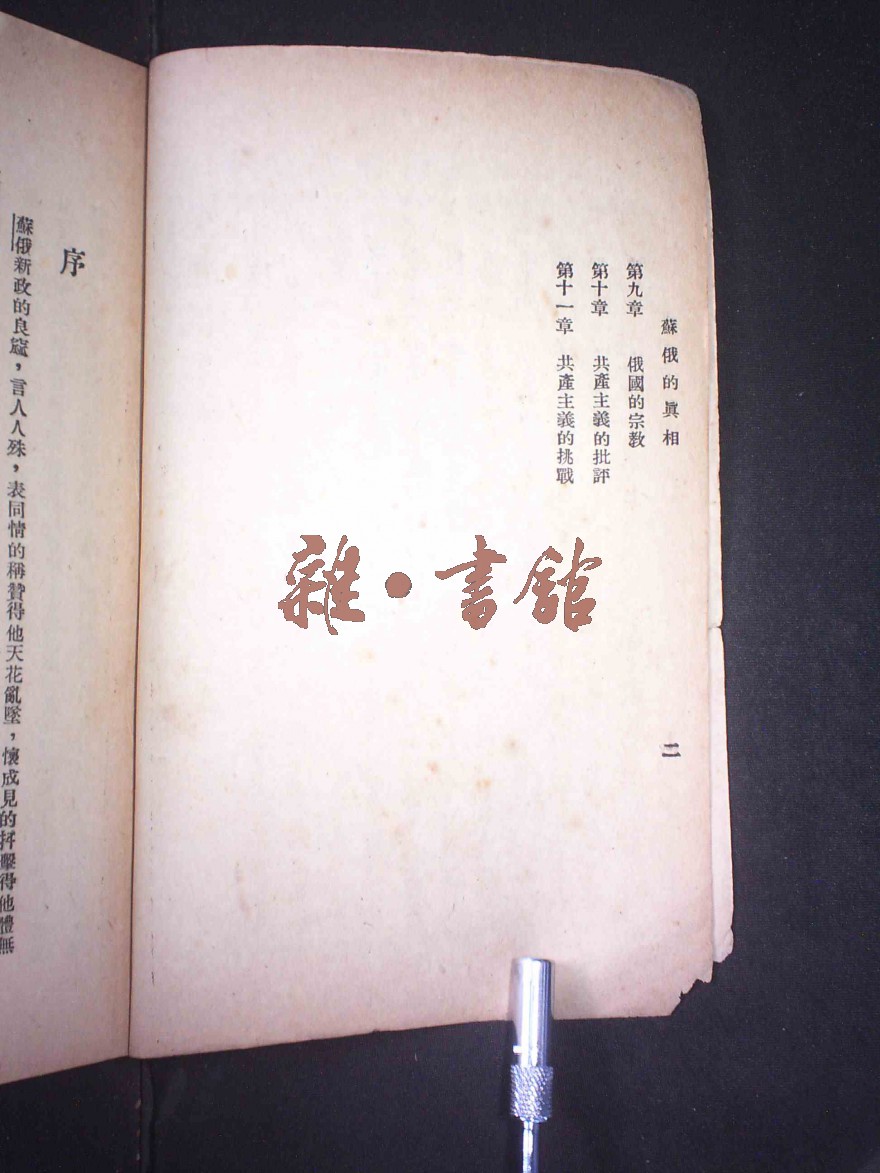 蘇俄的眞相
二
第九章　俄國的宗教
第十章　共產主義的批評
第十一章　共產主義的挑戰
雜•書館
序
蘇俄新政的良窳，言人人殊，表同情的稱贊得他天花亂墜，懷成見的抨擊得他體無